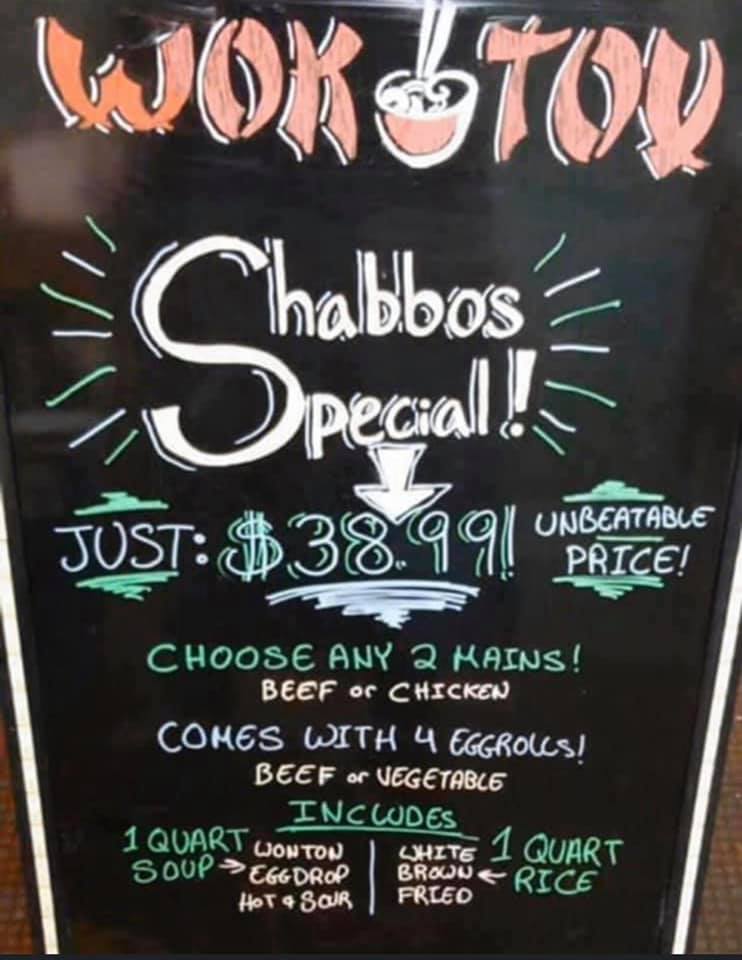 WOK TOV
Shabbos
Special!
JUST: $38.99! UNBEATABLE
PRICE!
CHOOSE ANY 2 MAINS!
BEEF or CHICKEN
COMES WITH 4 EGGROLLS!
BEEF or VEGETABLE
INCLUDES
1 QUART
SOUP → WONTON
EGG DROP
HOT & SOUR
WHITE
BROWN ← 1 QUART
FRIED RICE